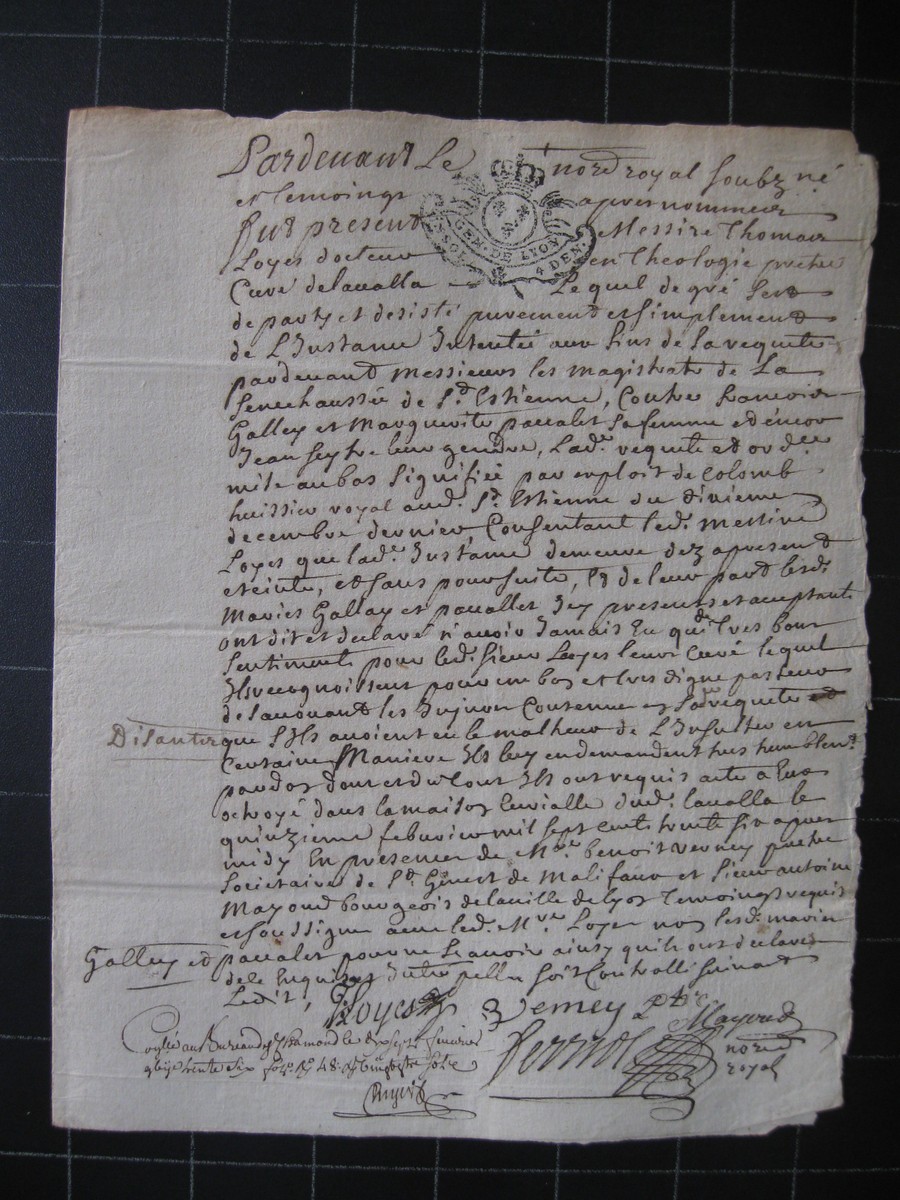 Pardevant Le nore royal soubz né
et temoings apres nommees
fut present Messire Thomas
Loyes docteur en Theologie prestre
GEN. DE LYON
4 DEN.
Curé de lavalla Lequel de gré sest
departy et desisté purement et simplement
de L'Instance Intentée aux fins de sa requete
pardevant messieurs les magistrats de La
Senechaussée de St Estienne, Contre francois
Galley et Marguerite paccalet sa femme et encor
Jean seytre leur gendre, Lade requete et ordce
mise au bas signifiée par exploit de Colomb
huissier royal aud. St Estienne du dixieme
decembre dernier, Consentant led. messire
Loyes que lade Instance demeure dez apresent
eteinte, et sans poursuite, Et de leur part lesd.
Maries Galley et paccallet Icy presents et acceptants
ont dit et declaré n'avoir Jamais Eu que de tres bons
sentiments pour led. sieur Loyes leur Curé lequel
Ils recognoissent pour un bon et tres digne pasteur
desavouant les Injures Contenues en sa requete
Disants que s'Ils avoient eu le malheur de L'Insulter en
Certaine Maniere Ils luy en demandent tres humblemt
pardon dont et du tout Ils ont requis acte a Eux
octroyé dans la maison Curialle dud. lavalla le
quinzieme febvrier mil sept cents trente six apres
midy En presence de Mre benoit verney prestre
Societaire de St Genest de Malifaux et sieur antoine
Mayoud bourgeois de la ville de lyon temoings requis
et soussigné avec led. Mre Loyes non lesd. maries
Galley et paccalet pour ne scavoir ainsy qu'ils ont declaré
de le Enquis et Interpellés soit Controllé suivant
Ledit,
Loyes
Verney ptre
Mayoud
nore
royal